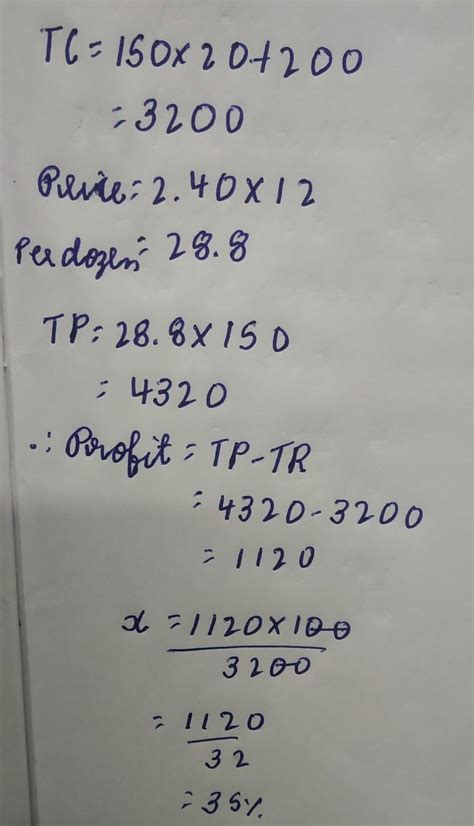 TC = 150 × 20 + 200
= 3200
Price = 2.40 × 12
Per dozen = 28.8
TP = 28.8 × 150
= 4320
∴ Profit = TP - TR
= 4320 - 3200
= 1120
x = 1120 × 100
3200
= 1120
32
= 35%